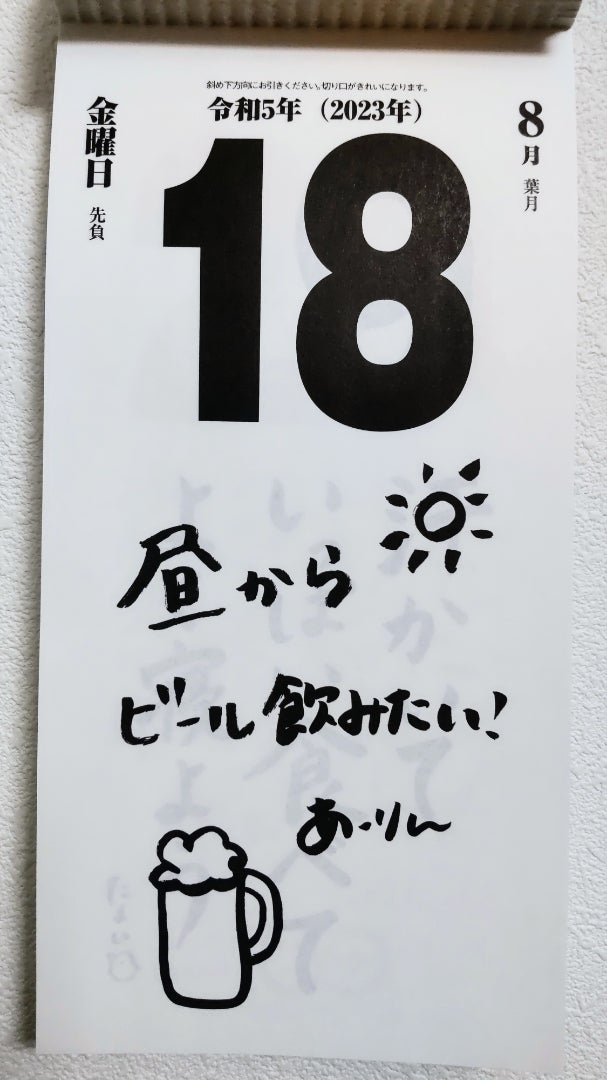 斜め下方向にお引きください。切り口がきれいになります。
令和5年（2023年）
8月 葉月
金曜日 先負
18
昼から
ビール飲みたい!
あーりん